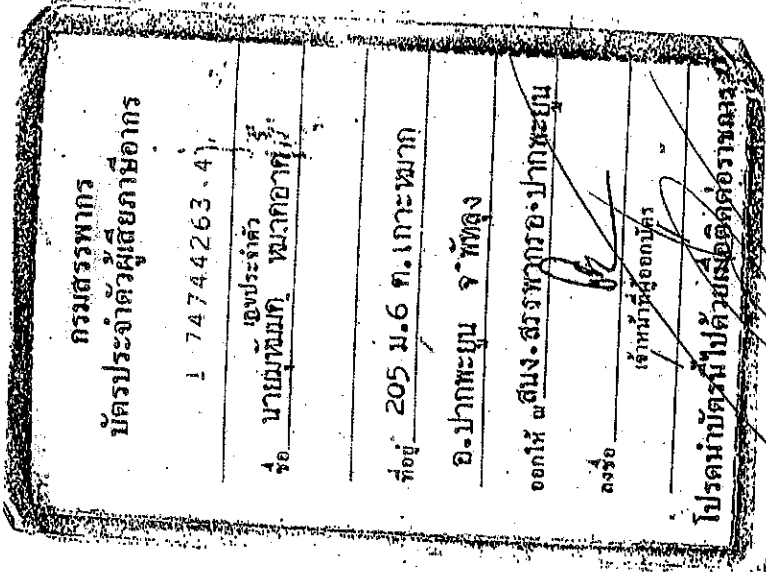 กรมสรรพากร
บัตรประจำตัวผู้เสียภาษีอากร
1 74744263.4
เลขประจำตัว
ชื่อ นายมูหัมมัด หมาดอาด
ที่อยู่ 205 ม.6 ต.เกาะหมาก
อ.ปากพะยูน จ.พัทลุง
ออกให้ ณ สนง.สรรพากรอ.ปากพะยูน
ลงชื่อ
เจ้าหน้าที่ผู้ออกบัตร
โปรดนำบัตรนี้ไปด้วยเมื่อติดต่อราชการ